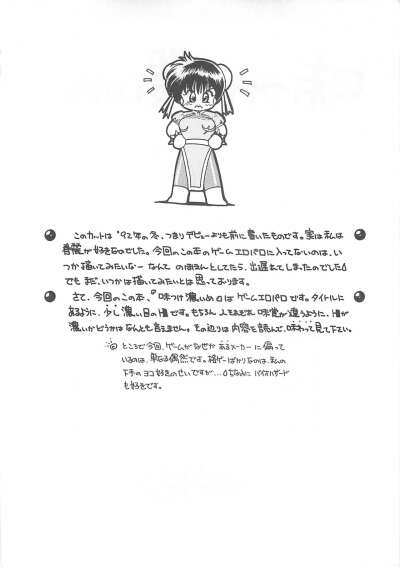 このカットは '92年の冬、つまりデビューよりも前に書いたものです。実は私は
春麗が好きなのでした。今回のこの本のゲームエロパロに入ってないのは、い
つか描いてみたいなー なんて のほほんとしてたら、出遅れてしまったのでした
でも まだ、いつかは描いてみたいとは 思っております。
さて、今回のこの本、『味つけ濃いめ』はゲームエロパロです。タイトルに
あるように、少し濃い目の です。もちろん 人それぞれ 味覚が違うように、
濃いかどうかはなんとも言えません。その辺りは内容を読んで、味わって見て下さい。
ところで今回、ゲームがなぜか あるメーカーに偏って
いるのは、単なる偶然です。格ゲーばかりなのは、私の
下手のヨコ好きのせいですが… ちなみに バイオハザード
も好きです。